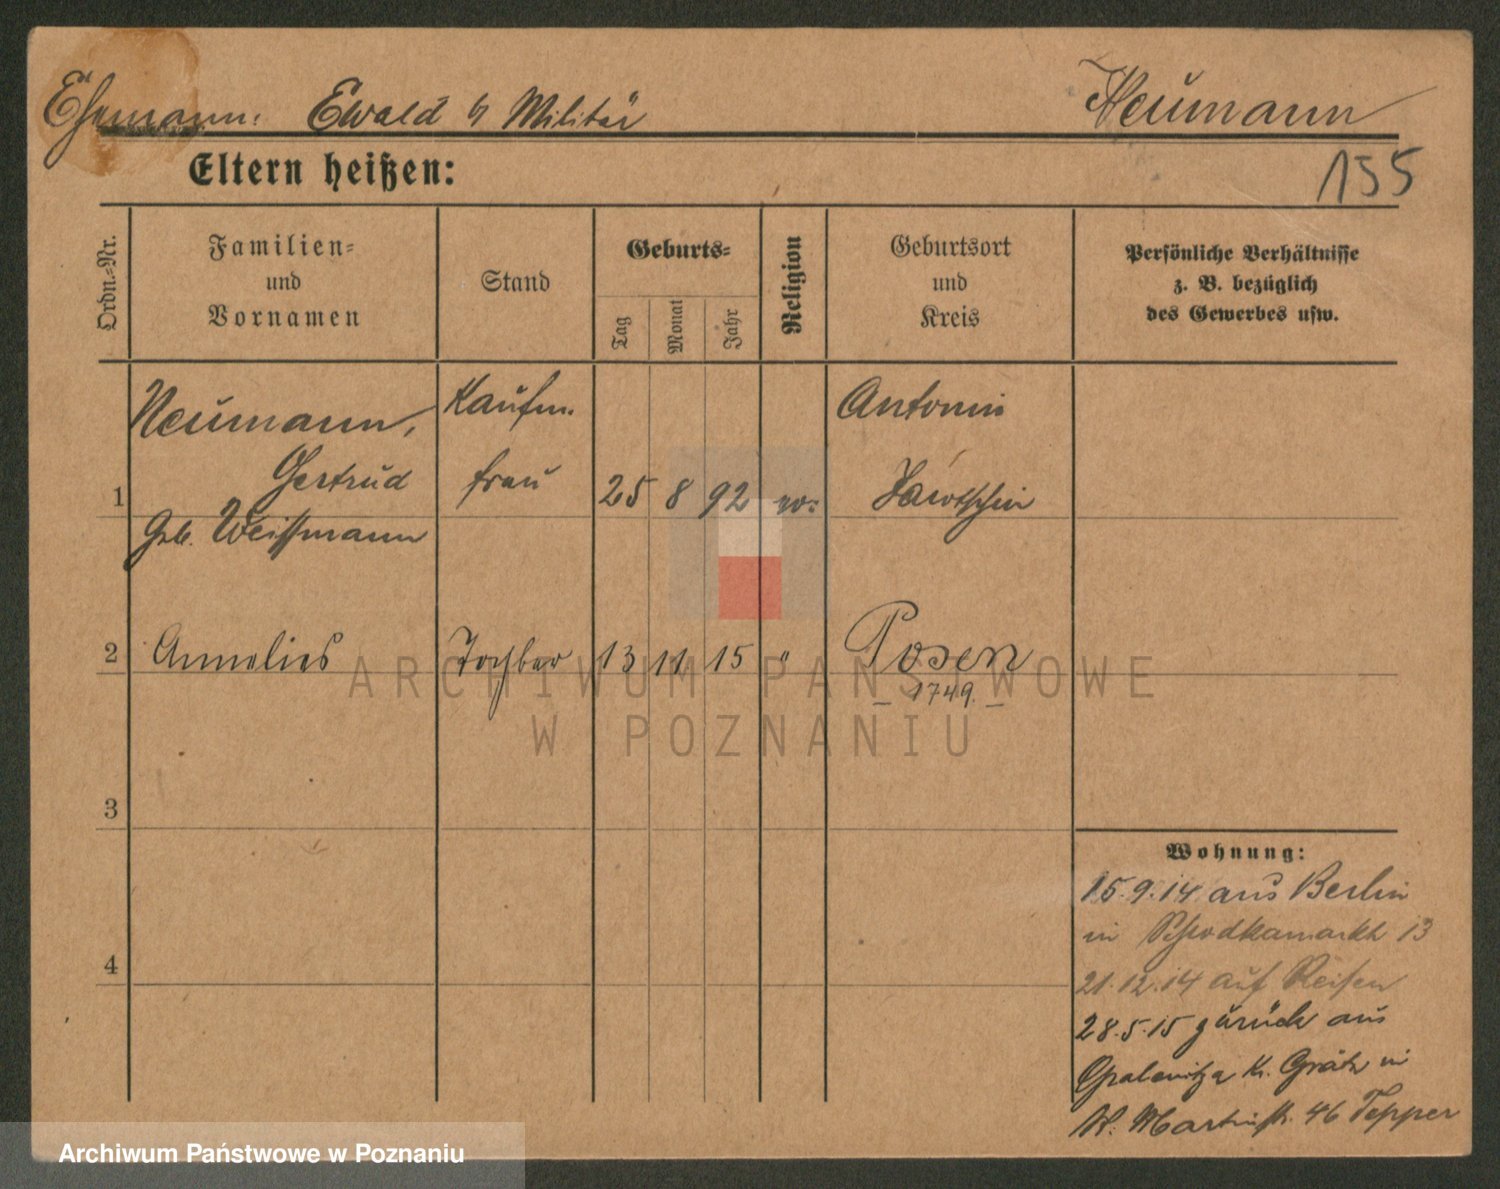 Ehemann: Ewald b/ Militär Neumann
Eltern heißen: 155
Ordn.-Nr. Familien- und Vornamen Stand Geburts- Tag Monat Jahr Religion Geburtsort und Kreis Persönliche Verhältnisse z. B. bezüglich des Gewerbes usw.
Neumann, Kaufm. Antonin
1 Gertrud frau 25 8 92 Jarotschin
Geb. Weissmann
2 Annelies Tochter 13 11 15 " Posen
1749.
3
4
Wohnung:
15.9.14 aus Berlin
in Sapiehamarkt 13
21.12.14 auf Reisen
28.5.15 zurück aus
Opalenitza Kr. Grätz in
St. Martinstr. 46 Tepper
ARCHIWUM PAŃSTWOWE
W POZNANIU
Archiwum Państwowe w Poznaniu